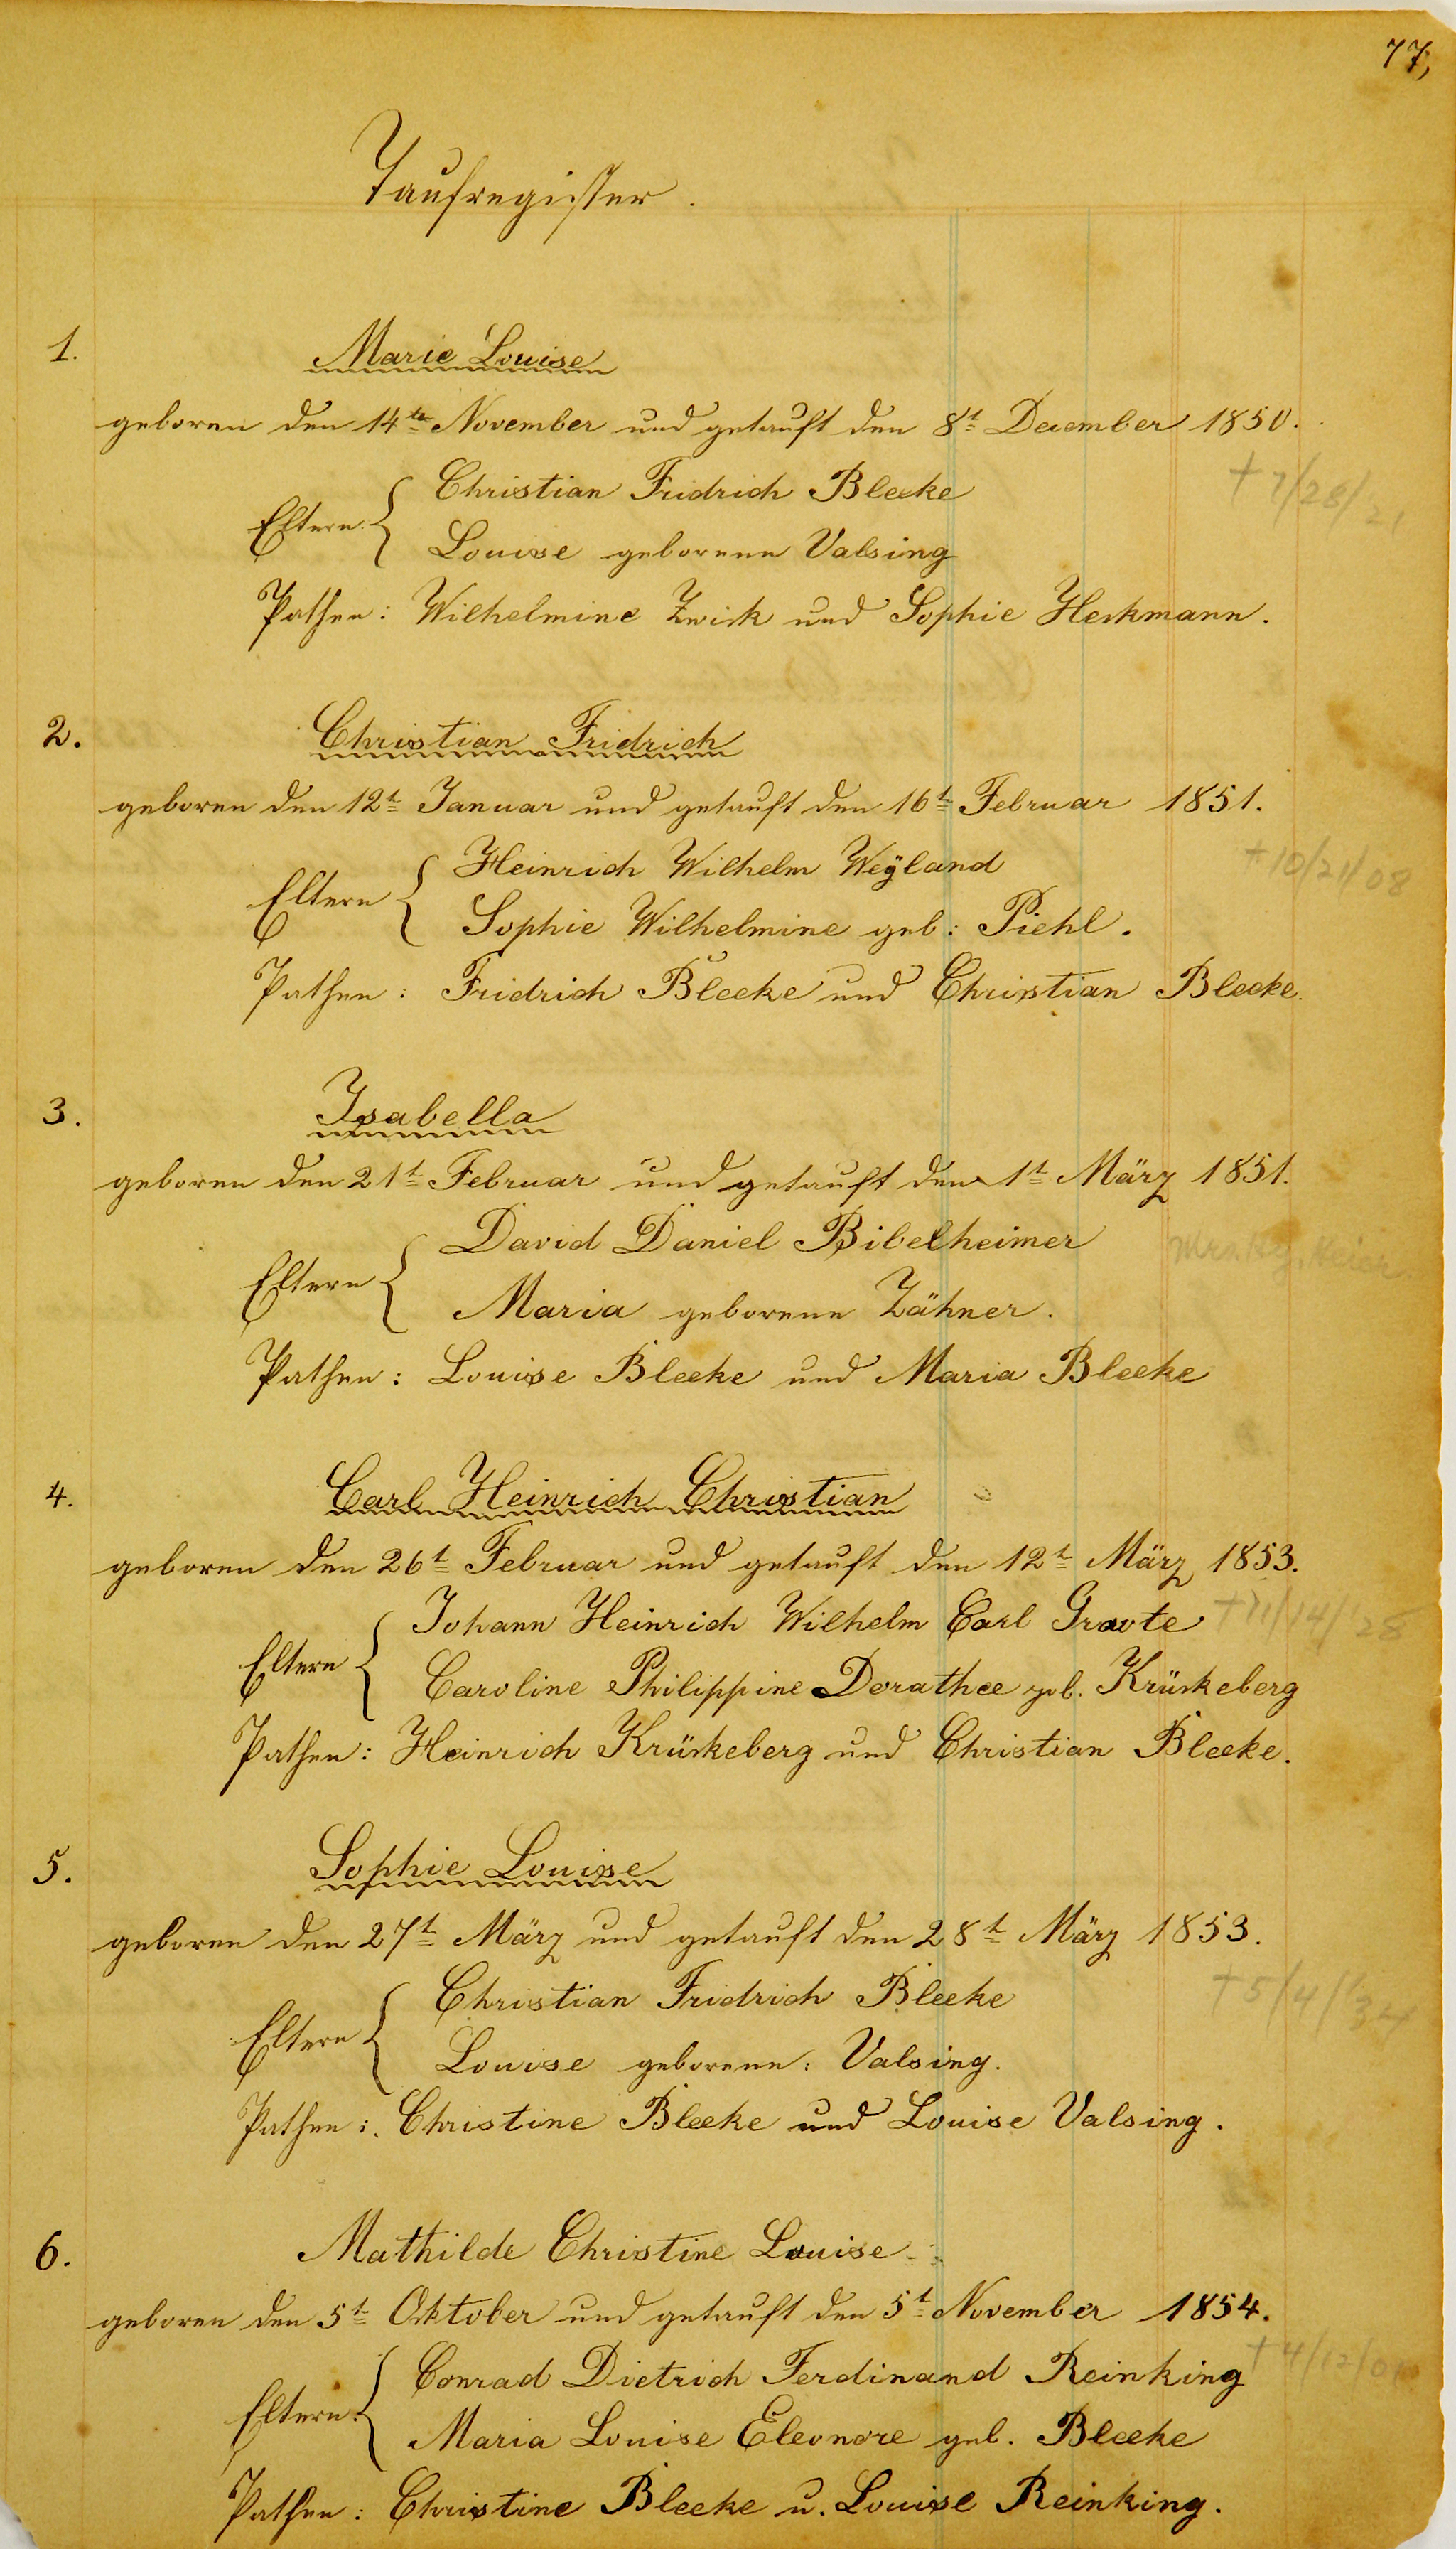 77,
Taufregister.
1.
Marie Louise
geboren den 14te November und getauft den 8t December 1850.
+ 7/28/21
Eltern: { Christian Fridrich Bleeke
Louise geborene Valsing
Pathen: Wilhelmine Zwick und Sophie Heckmann.
2.
Christian Fridrich
geboren den 12t Januar und getauft den 16t Februar 1851.
+ 10/21/08
Eltern { Heinrich Wilhelm Weÿland
Sophie Wilhelmine geb: Piehl.
Pathen: Fridrich Bleeke und Christian Bleeke.
3.
Isabella
geboren den 21t Februar und getauft den 1t März 1851.
Eltern { David Daniel Bibelheimer
Mrs.
Maria geborene Zähner.
Pathen: Louise Bleeke und Maria Bleeke
4.
Carl Heinrich Christian
geboren den 26t Februar und getauft den 12t März 1853.
Eltern { Johann Heinrich Wilhelm Carl Grote
+ 11/14/28
Caroline Philippine Dorathee geb. Krückeberg
Pathen: Heinrich Krückeberg und Christian Bleeke.
5.
Sophie Louise
geboren den 27t März und getauft den 28t März 1853.
+ 5/4/34
Eltern { Christian Fridrich Bleeke
Louise geborene: Valsing.
Pathen: Christine Bleeke und Louise Valsing.
6.
Mathilde Christine Louise
geboren den 5t Oktober und getauft den 5t November 1854.
+ 4/12/01
Eltern: { Conrad Dietrich Ferdinand Reinking
Maria Louise Eleonore geb. Bleeke
Pathen: Christine Bleeke u. Louise Reinking.